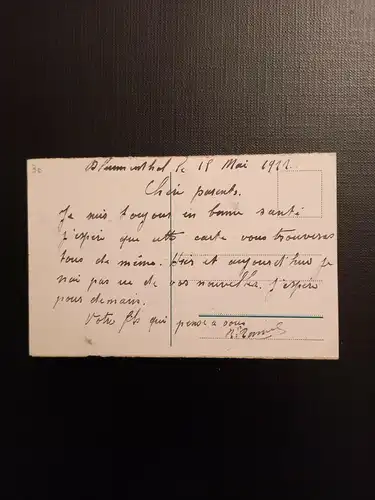 30
Blumenthal le 15 Mai 1922
Chers parents.
Je suis toujours en bonne santé
j'espère que cette carte vous trouveras
tous de même. Hier et aujourd'hui je
n'ai pas eu de vos nouvelles. J'espère
pour demain.
Votre fils qui pense a vous